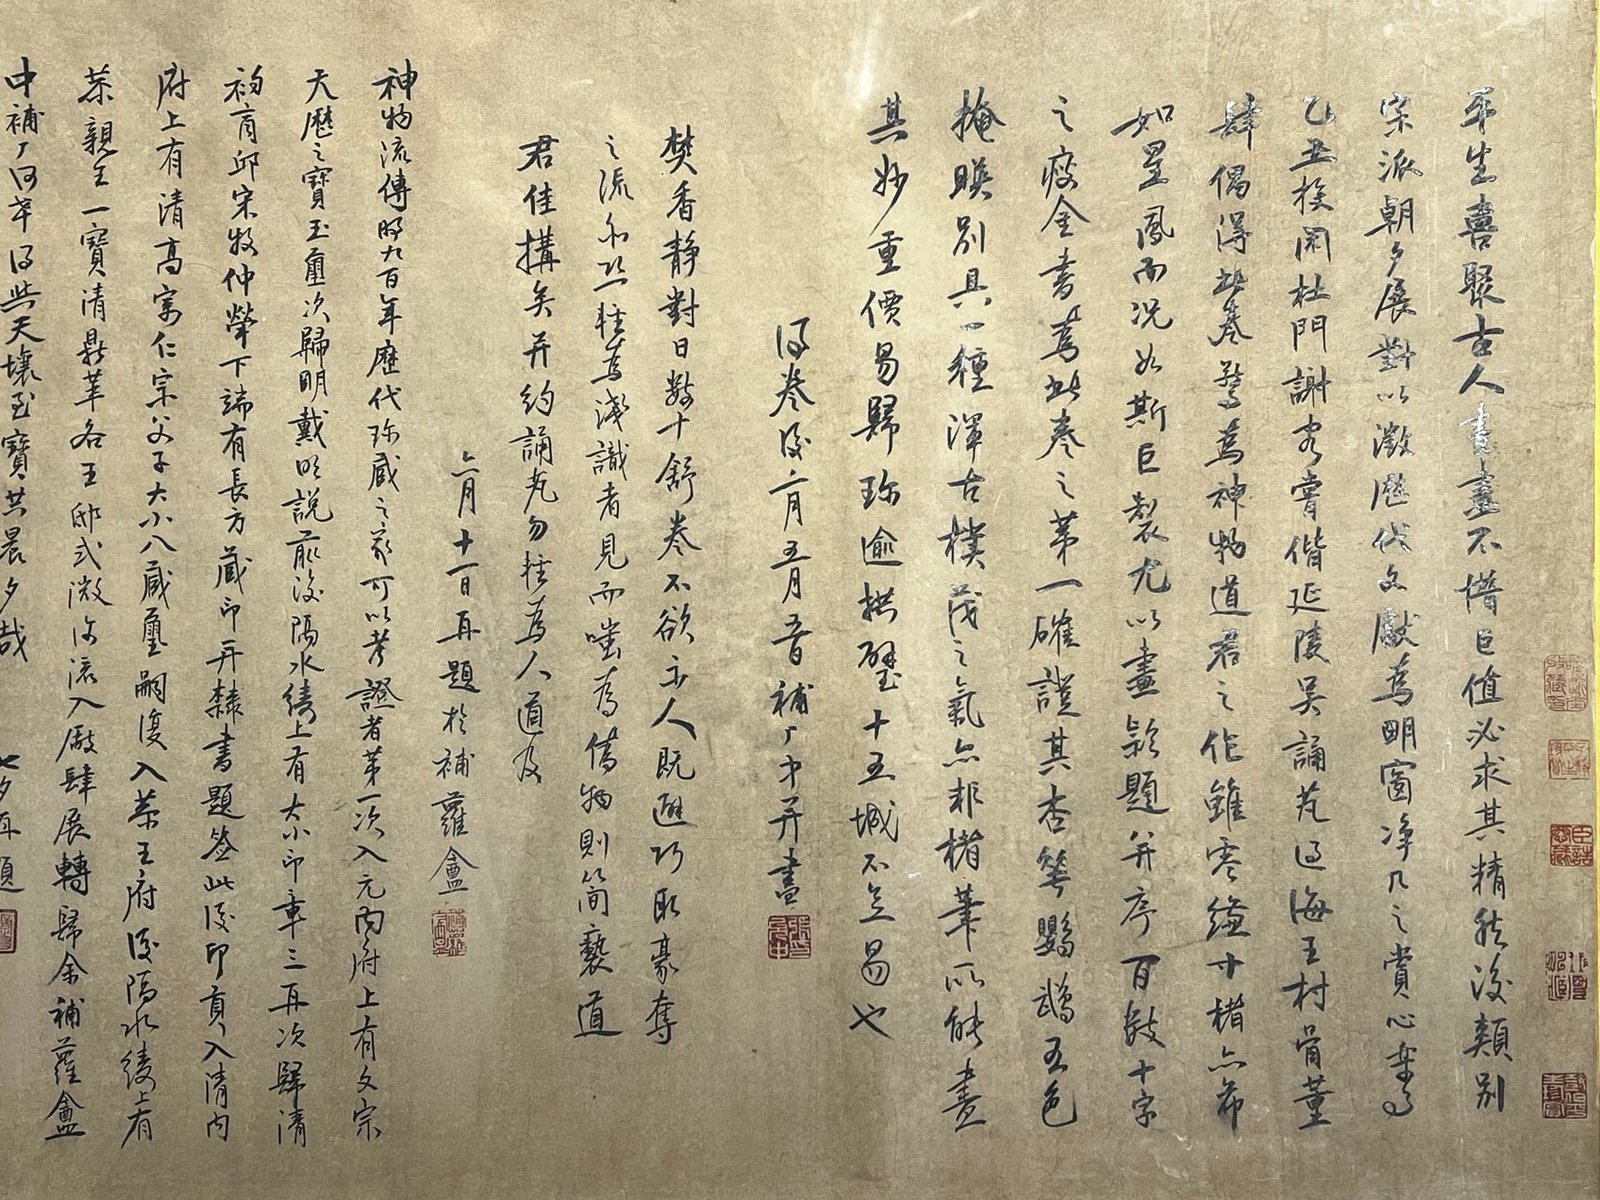 平生喜聚古人書畫不惜巨值必求其精然後類別
宗派朝夕展對以徵歷代文獻為明窗净几之賞心樂焉
乙丑梜閑杜門謝客嘗偕延陵吴誦芃過海王村骨董
肆偶得此卷驚為神物道君之作雖零縑寸楮亦希
如星鳳而況如斯巨製尤以畫款題并序百數十字
之瘦金書為此卷之第一確證其杏花鸚鵡五色
掩映别具一種渾古樸茂之氣亦非楮筆所能盡
其妙重價易歸珍逾拱璧十五城不足易也
得卷後二月五月五日補厂并書
焚香靜對日數十舒卷不欲示人既避巧取豪奪
之流亦恐為淺識者見而嗤為僞物則簡褻道
君佳搆矣并約誦芃勿為人道及
六月十一日再題於補蘿盦
神物流傳將九百年歷代珍藏之家可以考證者第一次入元內府上有文宗
天歷之寶玉璽次歸明戴明説前後隔水綾上有大小印章三再次歸清
初商邱宋牧仲犖下端有長方藏印并隸書題簽此後即貢入清內
府上有清高宗仁宗父子大小八璽嗣復入恭王府後隔水綾上有
恭親王一寶清鼎革各王邸式微流入廠肆展轉歸余補蘿盦
中補厂何幸得此天壤至寶共晨夕哉
七夕再題